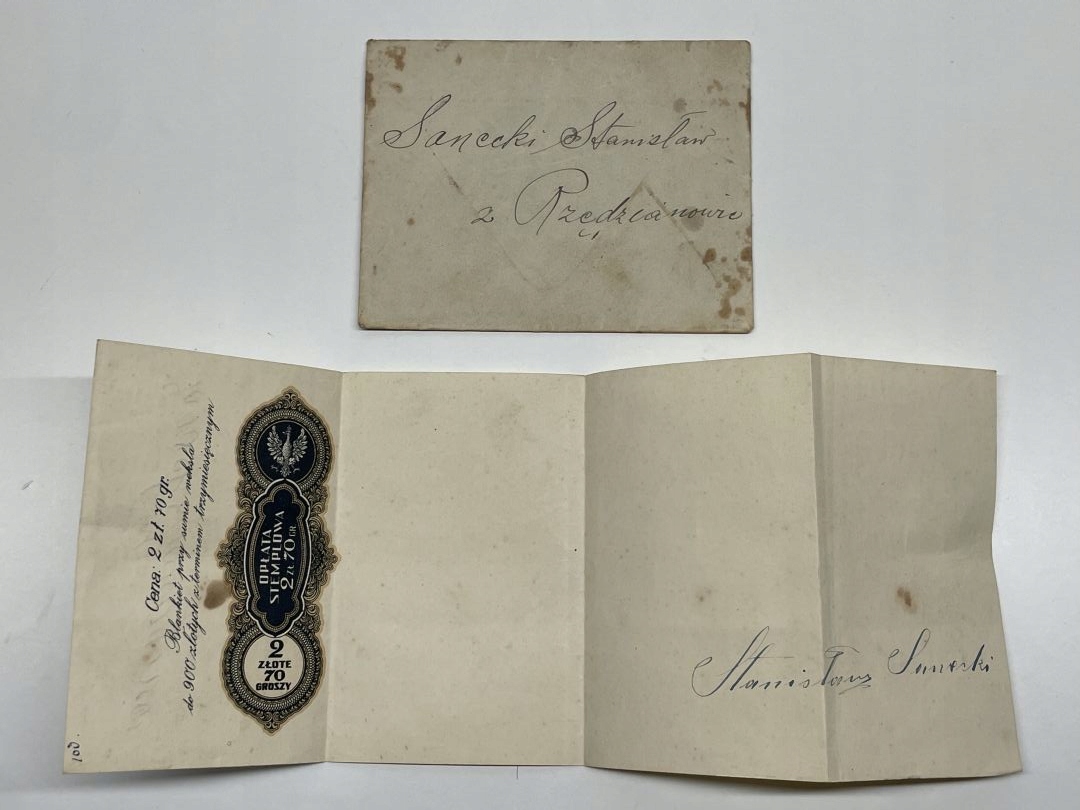 Sanecki Stanisław
z Rzędzianowic
Cena: 2 zł. 70 gr.
Blankiet przy sumie weksla
do 900 złotych z terminem trzymiesięcznym
OPŁATA
STEMPLOWA
2 ZŁ 70 GR
2
ZŁOTE
70
GROSZY
Stanisław Sanecki